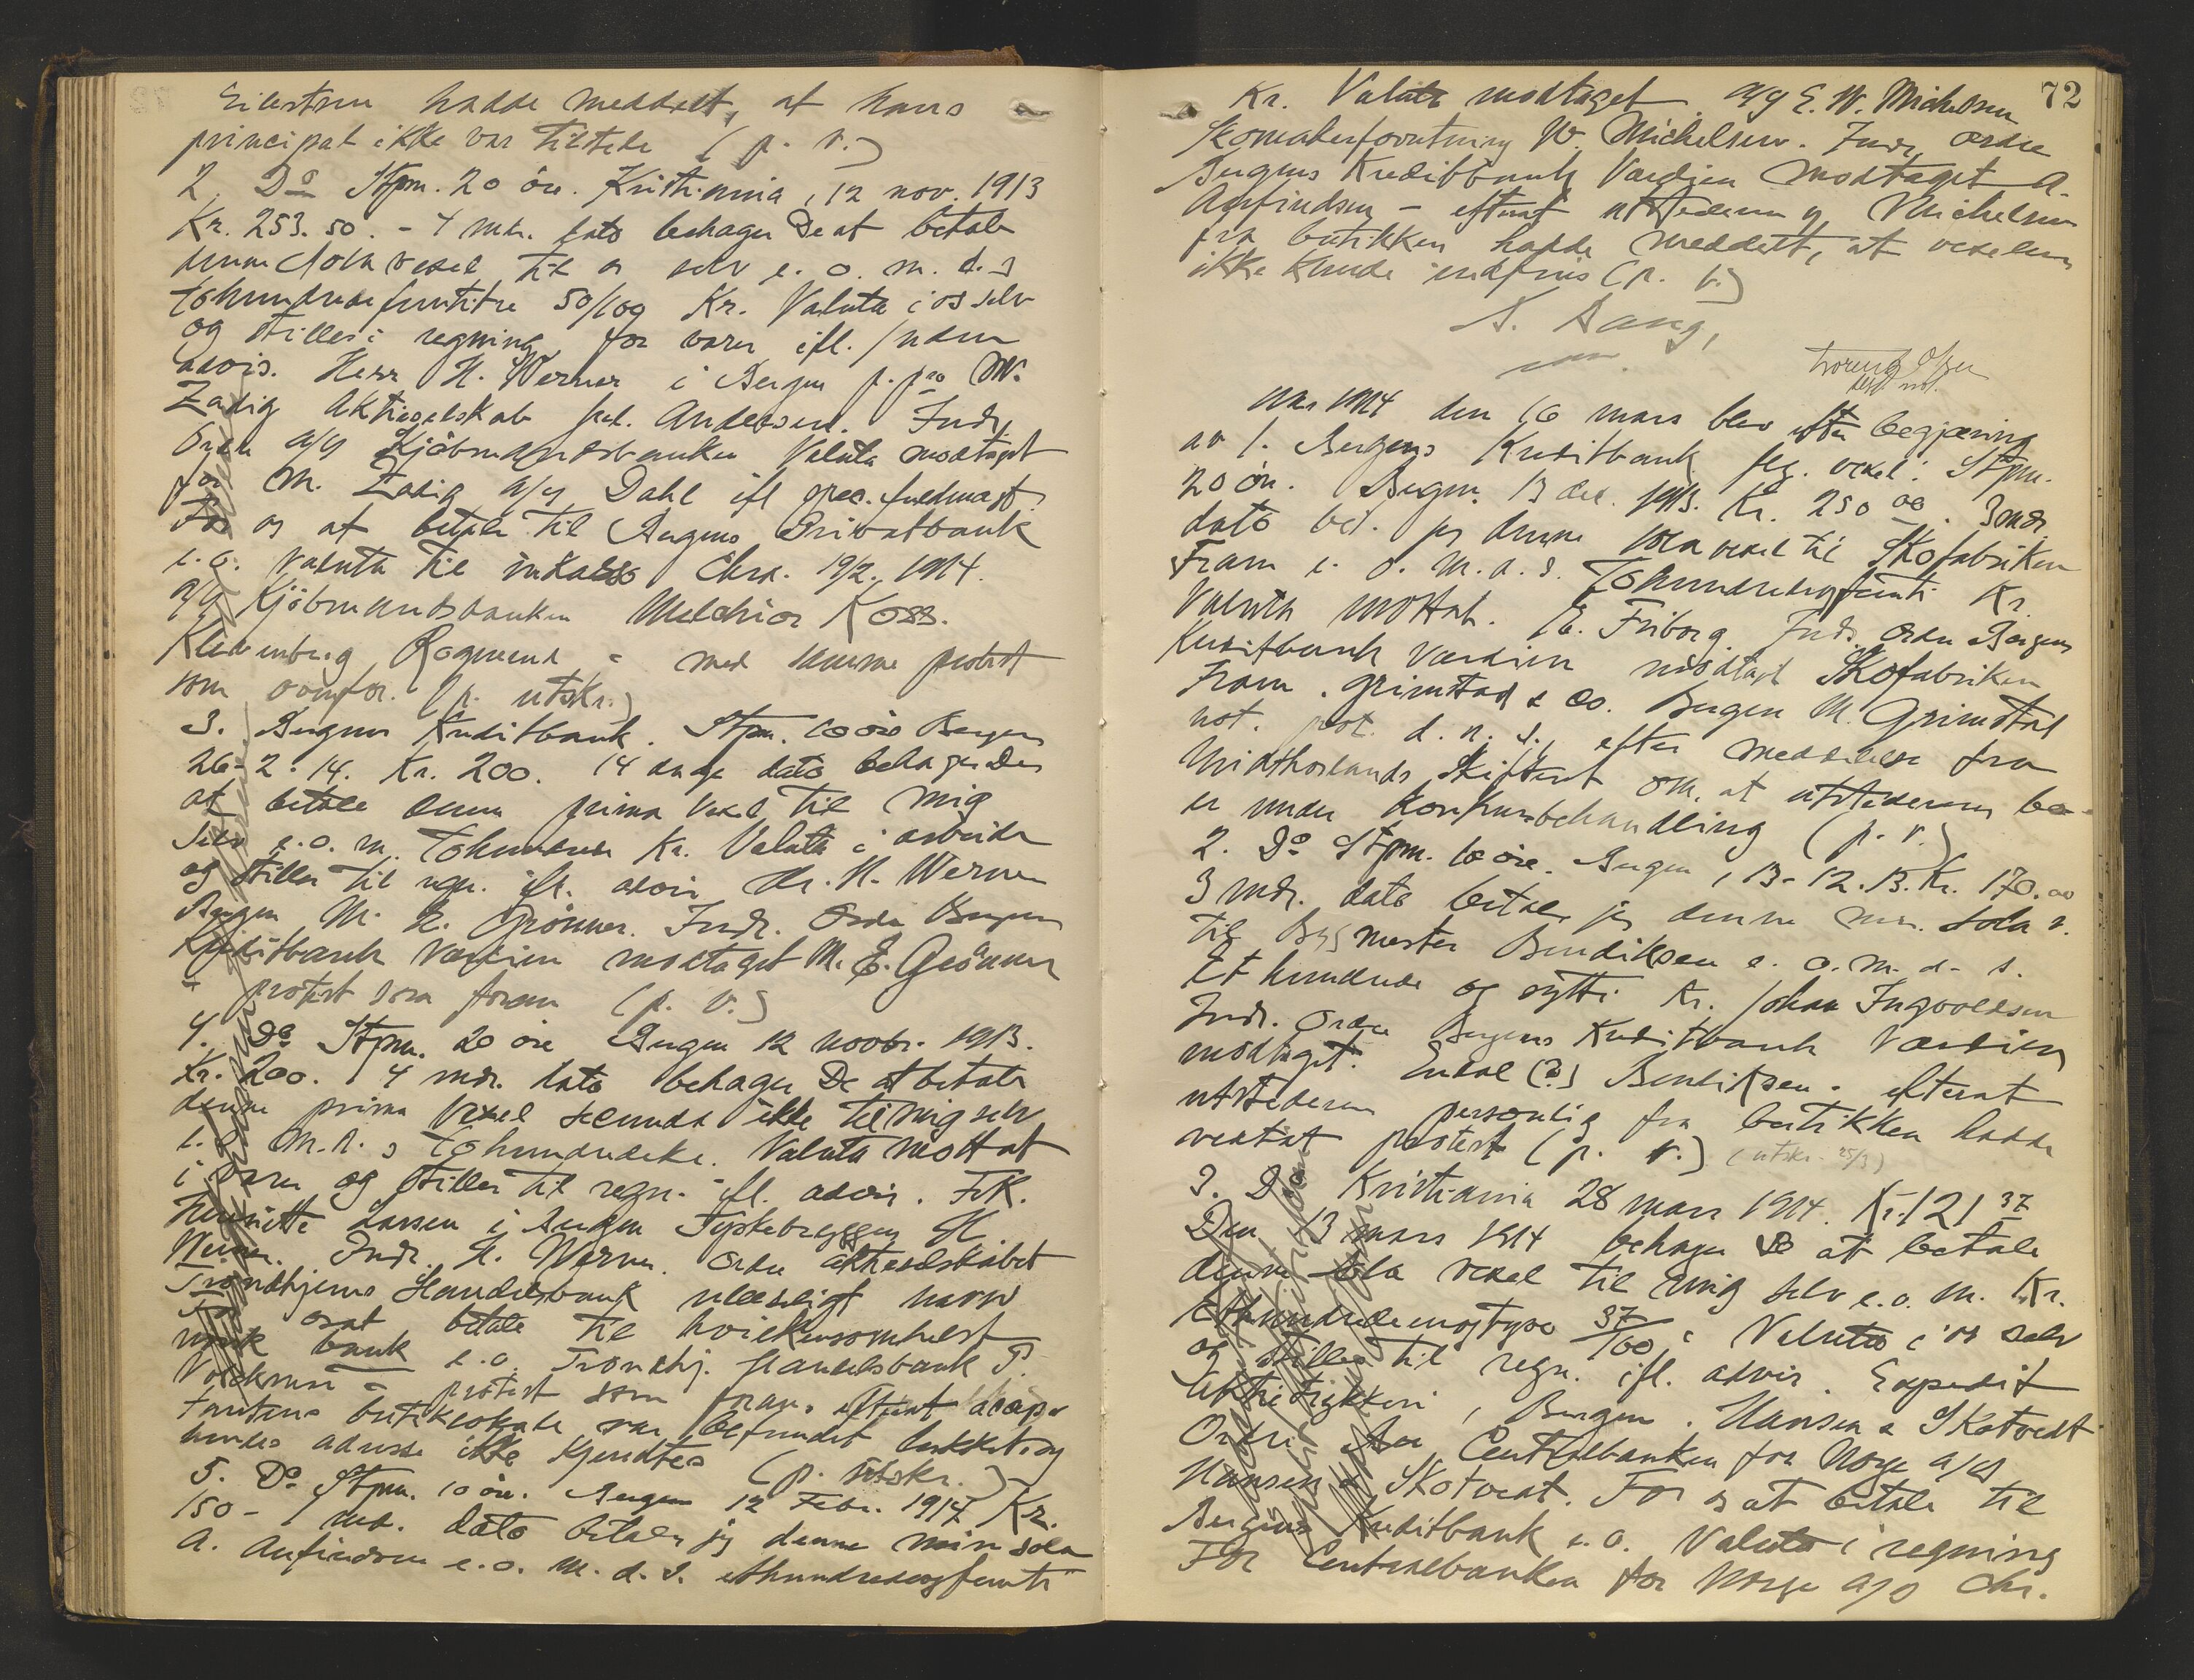 hadde meddelt, at hans
principal ikke var tilstede (p. v.)
2. Do Stpm. 20 öre. Kristiania, 12 nov. 1913
Kr. 253.50. - 4 mdr. dato behager De at betale
denne sola vexel til os selv e. o. m. d. s
tohundredefemtitre 50/100 Kr. Valuta i os selv
og stilles i regning for varer ifl. /uden
advis. Herr H. Werner i Bergen p. pro M.
Zadig Aktieselskab Andersen. Indr.
Ordre A/S Kjöbmandsbanken Valuta modtaget
for M. Zadig A/S Dahl ifl spec. fuldmagt.
For os at betale til Bergens Privatbank
e. o. Valuta til inkasso Chra. 19/2. 1914.
A/S Kjöbmandsbanken Melchior Koss.
- med samme protest
som ovenfor. (p. utskr.)
3. Bergens Kreditbank. Stpm. 10 öre Bergen
26-2-14. Kr. 200. 14 dage dato behager De
at betale denne prima vexel til mig
selv e. o. m. Tohundrede Kr. Valuta i arbeide
og stilles til regn. ifl. advis Hr. H. Werner
Bergen M. E. Grönner. Indr. Ordre Bergens
Kreditbank Værdien modtaget M. E. Grönner
- protest som foran (p. v.)
4. Do Stpm. 20 öre Bergen 12 novbr. 1913.
Kr. 200. 4 mdr. dato behager De at betale
denne prima vexel secunda ikke til mig selv
e. o. m. d. s Tohundredekr. Valuta mottat
i varer og stilles til regn. ifl. advis. Frk.
Henriette Larsen i Bergen Tyskebryggen H
Werner. Indr. H. Werner. Ordre Aktieselskabet
Trondhjems Handelsbank ulæseligt navn
For os at betale til hvilkensomhelst
norsk bank e. o. Trondhj. Handelsbank P.
- protest som foran efterat accep-
tantens butiklokale var befundet lukket og
hendes adresse ikke kjendtes (p. utskr.)
5. Do Stpm. 10 öre. Bergen 12 Febr. 1914 Kr.
150 - 1 md. dato betaler jeg denne min sola
A. Anfindsen e. o. m. d. s. ethundredeogfemti
72
Kr. Valuta modtaget. A/S E. W. Michelsen
Skomakerforretning W. Michelsen. Indr. ordre
Bergens Kreditbank Værdien modtaget A.
Anfindsen - efterat utstederen Michelsen
fra butikken hadde meddelt, at vexelen
ikke kunde indfries (p. v.)
Aar 1914 den 16 mars blev efter begjæring
av 1. Bergens Kreditbank flg. vexel: Stpm.
20 ör. Bergen 13 dec. 1913. Kr. 250 00. 3 mdr.
dato bet. jeg denne sola vexel til Skofabriken
Fram e. o. m. d. s. Tohundredeogfemti Kr.
Valuta mottat. E. Friborg. Indr. Ordre Bergens
Kreditbank Værdien modtaget Skofabriken
Fram. Grimstad & Co. Bergen M. Grimstad
not. prot. d. n. s., efter meddelelse fra
Midthordlands Skifteret om, at utstederens bo
er under konkursbehandling (p. v.)
2. Do Stpm. 10 öre. Bergen, 13-12.13. Kr. 170.00
3 mdr. dato betaler jeg denne min sola v.
til Bygmester Bendiksen e. o. m. d. s.
Et hundrede og sytti Kr. Johan Ingvoldsen
Indr. Ordre Bergens Kreditbank Værdien
modtaget. Endal (?) Bendiksen. efterat
utstederen personlig fra butikken hadde
vedtat protest (p. v.) (utskr. 25/3)
3. Do Kristiania 28 mars 1914. Kr. 121 37
Den 13 mars 1914 behager De at betale
denne sola vexel til mig selv e. o. m. Kr.
Ethundredeenogtyve 37/100 Valuta i os selv
og stilles til regn. ifl. advis. Expedit
Aktietrykkeri, Bergen. Hansen & Skotvedt
Ordre Centralbanken for Norge A/S
Hansen & Skotvedt. For os at betale til
Bergens Kreditbank e. o. Valuta i regning
For Centralbanken for Norge A/S Chr.